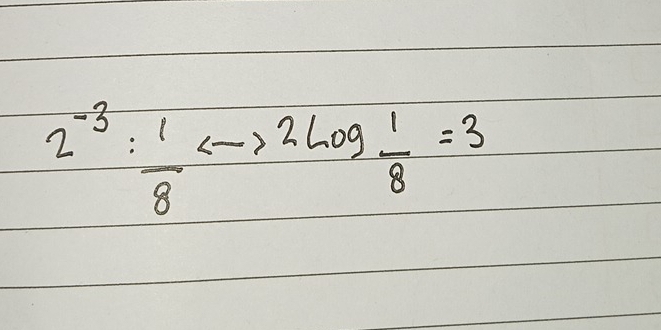 2⁻³ : 1/8 <-> 2 Log 1/8 = 3